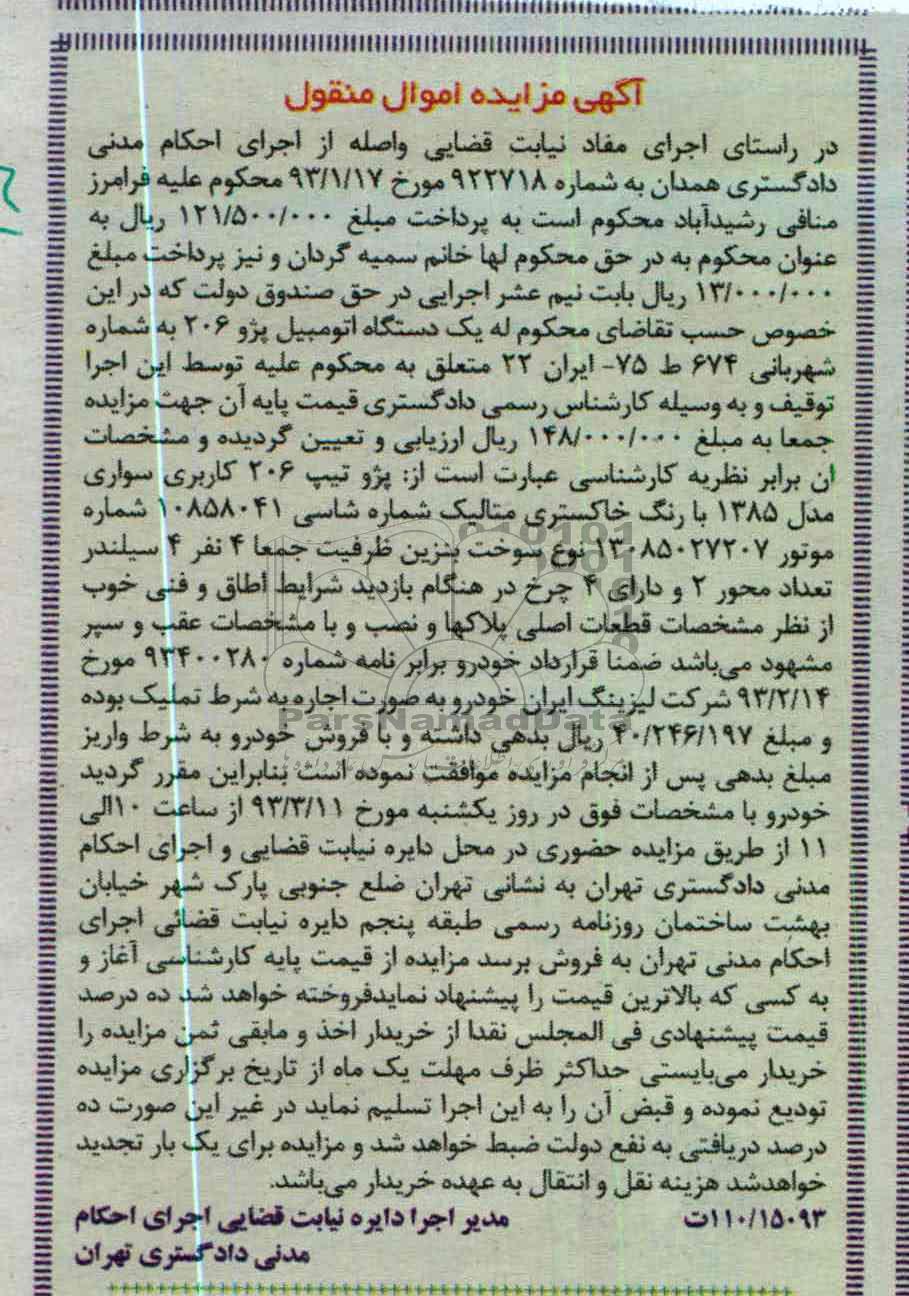 آگهی مزایده اموال منقول
در راستای اجرای مفاد نیابت قضایی واصله از اجرای احکام مدنی
دادگستری همدان به شماره ۹۲۲۷۱۸ مورخ ۹۳/۱/۱۷ محکوم علیه فرامرز
منافی رشیدآباد محکوم است به پرداخت مبلغ ۱۲۱/۵۰۰/۰۰۰ ریال به
عنوان محکوم به در حق محکوم لها خانم سمیه گردان و نیز پرداخت مبلغ
۱۳/۰۰۰/۰۰۰ ریال بابت نیم عشر اجرایی در حق صندوق دولت که در این
خصوص حسب تقاضای محکوم له یک دستگاه اتومبیل پژو ۲۰۶ به شماره
شهربانی ۶۷۴ ط ۷۵- ایران ۲۲ متعلق به محکوم علیه توسط این اجرا
توقیف و به وسیله کارشناس رسمی دادگستری قیمت پایه آن جهت مزایده
جمعا به مبلغ ۱۴۸/۰۰۰/۰۰۰ ریال ارزیابی و تعیین گردیده و مشخصات
ان برابر نظریه کارشناسی عبارت است از: پژو تیپ ۲۰۶ کاربری سواری
مدل ۱۳۸۵ با رنگ خاکستری متالیک شماره شاسی ۱۰۸۵۸۰۴۱ شماره
موتور ۱۳۰۸۵۰۲۷۲۰۷ نوع سوخت بنزین ظرفیت جمعا ۴ نفر ۴ سیلندر
تعداد محور ۲ و دارای ۴ چرخ در هنگام بازدید شرایط اطاق و فنی خوب
از نظر مشخصات قطعات اصلی پلاکها و نصب و با مشخصات عقب و سپر
مشهود می‌باشد ضمنا قرارداد خودرو برابر نامه شماره ۹۳۴۰۰۲۸۰ مورخ
۹۳/۲/۱۴ شرکت لیزینگ ایران خودرو به صورت اجاره به شرط تملیک بوده
و مبلغ ۴۰/۲۴۶/۱۹۷ ریال بدهی داشته و با فروش خودرو به شرط واریز
مبلغ بدهی پس از انجام مزایده موافقت نموده است بنابراین مقرر گردید
خودرو با مشخصات فوق در روز یکشنبه مورخ ۹۳/۳/۱۱ از ساعت ۱۰الی
۱۱ از طریق مزایده حضوری در محل دایره نیابت قضایی و اجرای احکام
مدنی دادگستری تهران به نشانی تهران ضلع جنوبی پارک شهر خیابان
بهشت ساختمان روزنامه رسمی طبقه پنجم دایره نیابت قضائی اجرای
احکام مدنی تهران به فروش برسد مزایده از قیمت پایه کارشناسی آغاز و
به کسی که بالاترین قیمت را پیشنهاد نمایدفروخته خواهد شد ده درصد
قیمت پیشنهادی فی المجلس نقدا از خریدار اخذ و مابقی ثمن مزایده را
خریدار می‌بایستی حداکثر ظرف مهلت یک ماه از تاریخ برگزاری مزایده
تودیع نموده و قبض آن را به این اجرا تسلیم نماید در غیر این صورت ده
درصد دریافتی به نفع دولت ضبط خواهد شد و مزایده برای یک بار تجدید
خواهدشد هزینه نقل و انتقال به عهده خریدار می‌باشد.
۱۱۰/۱۵۰۹۳ت مدیر اجرا دایره نیابت قضایی اجرای احکام
مدنی دادگستری تهران
ParsNamadData